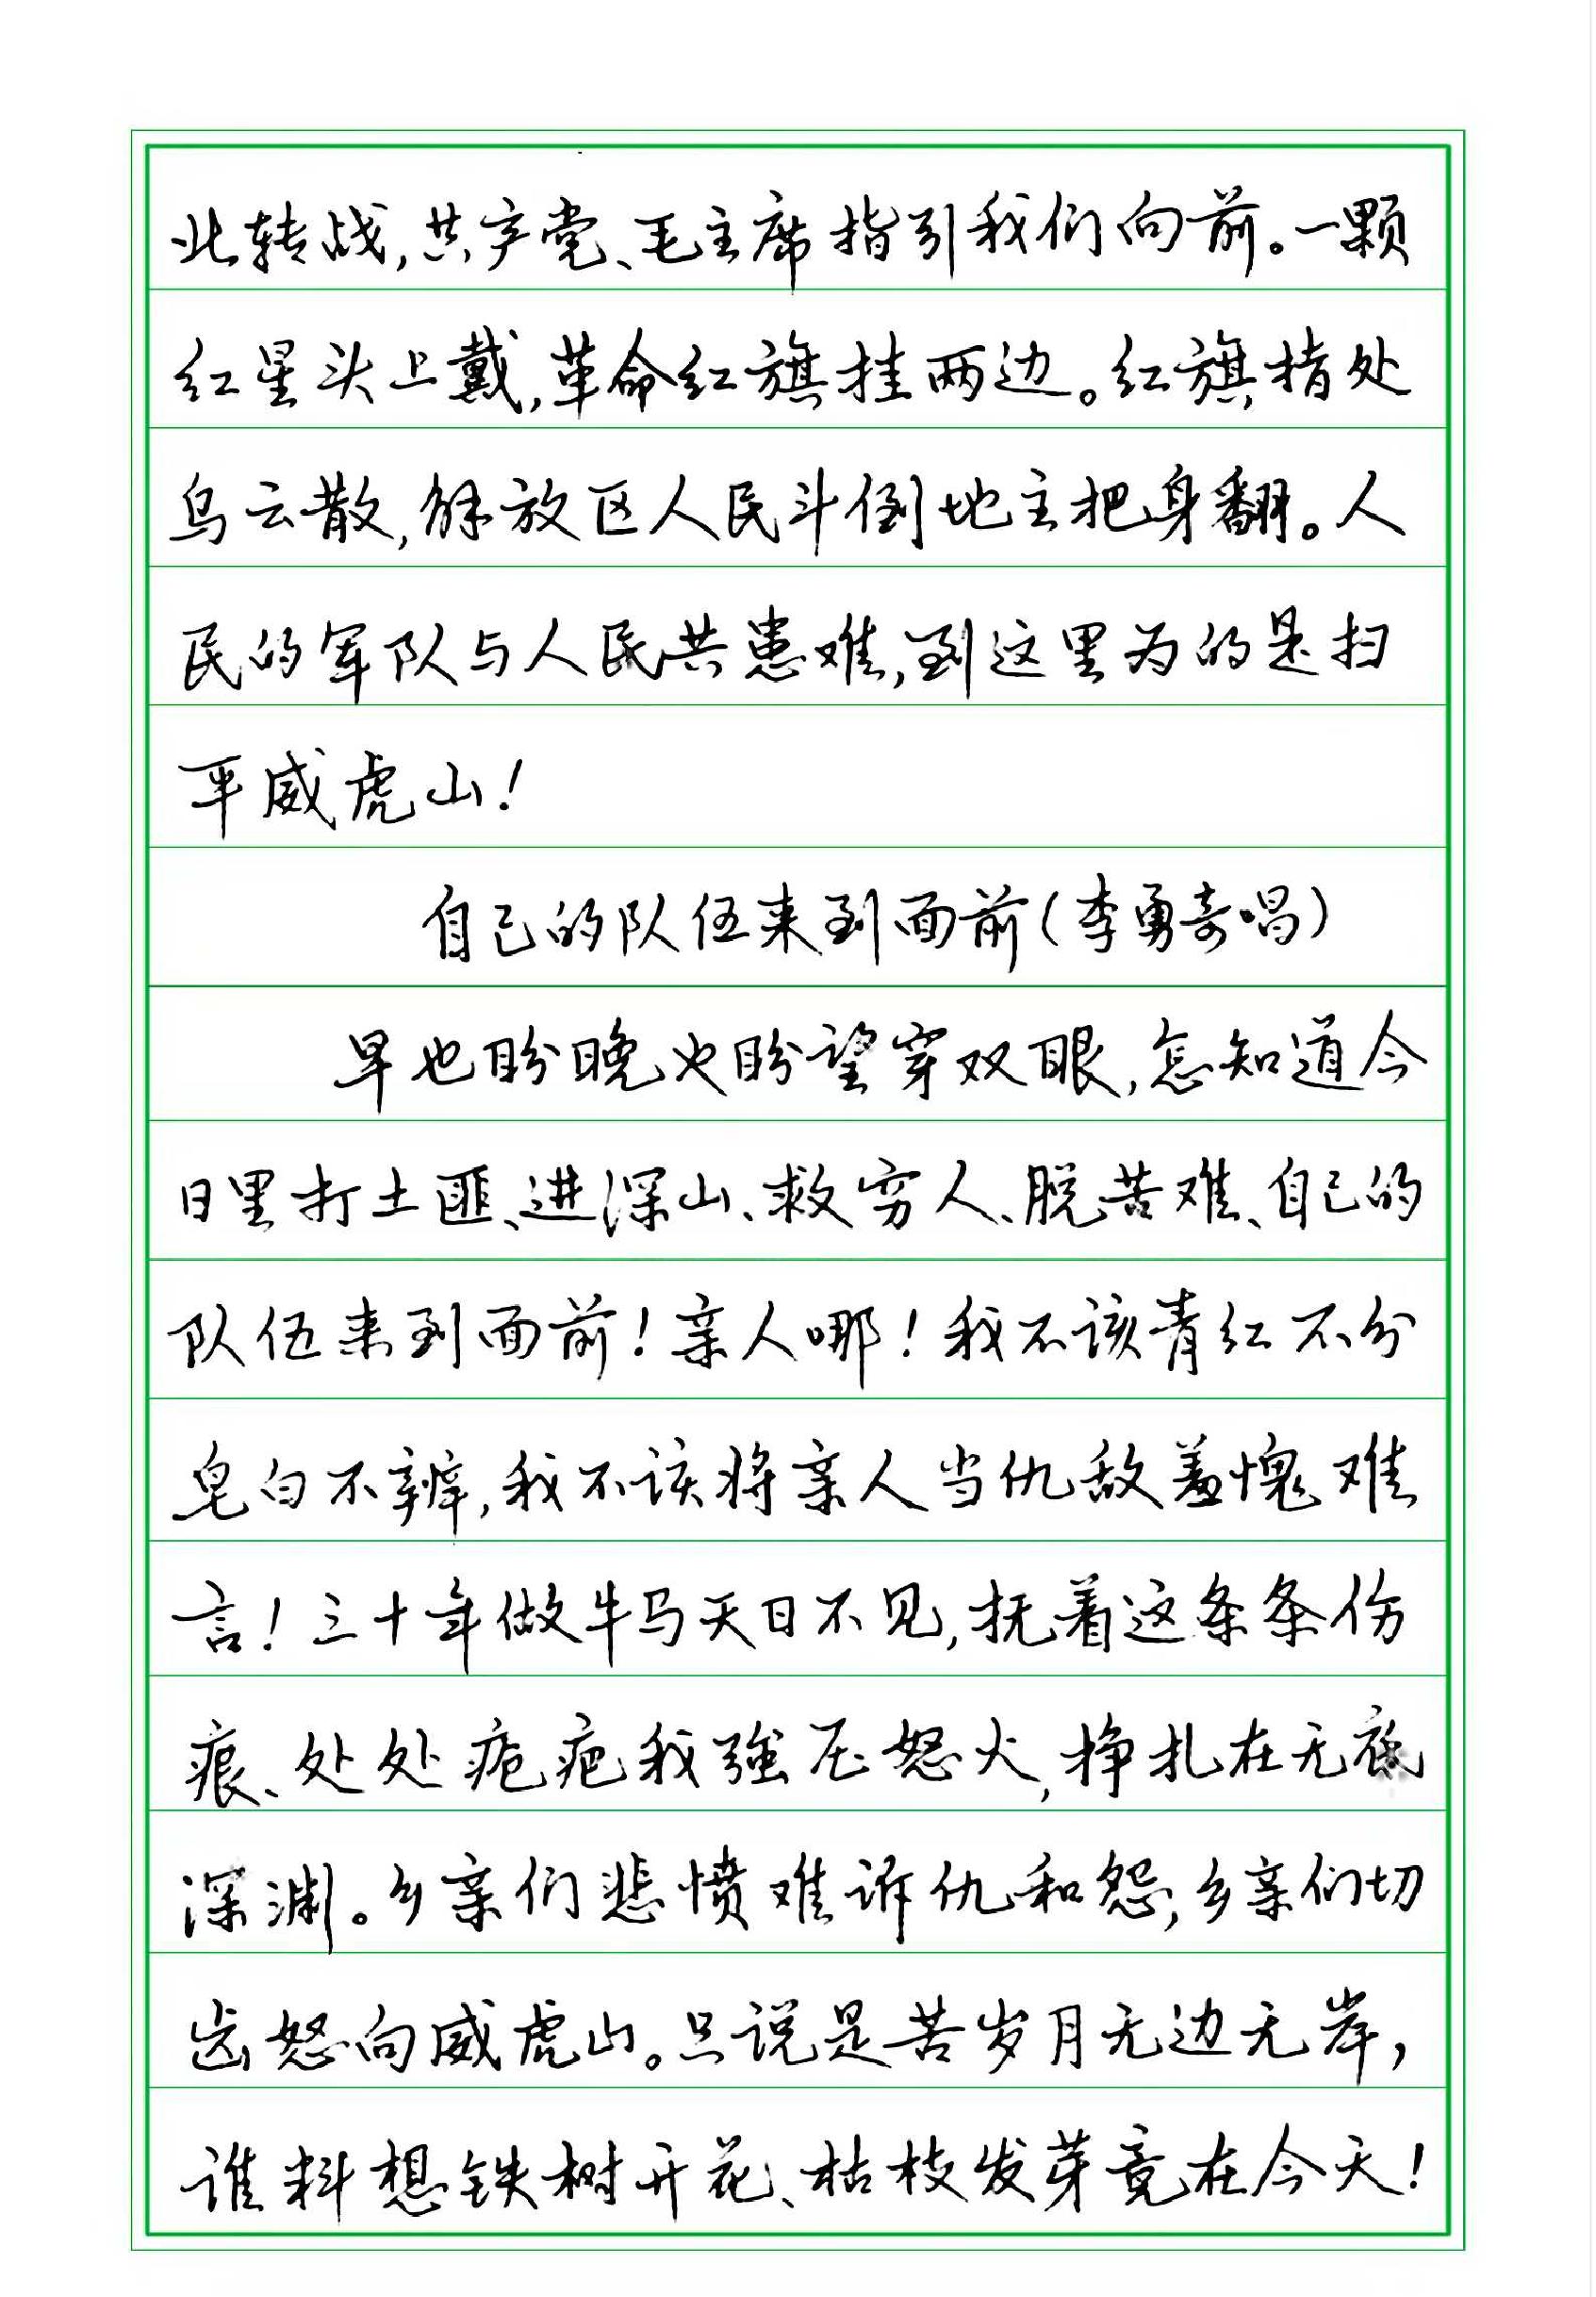 北转战,共产党、毛主席指引我们向前。一颗
红星头上戴,革命红旗挂两边。红旗指处
乌云散,解放区人民斗倒地主把身翻。人
民的军队与人民共患难,到这里为的是扫
平威虎山!
自己的队伍来到面前(李勇奇唱)
早也盼晚也盼望穿双眼,怎知道今
日里打土匪、进深山、救穷人、脱苦难、自己的
队伍来到面前!亲人哪!我不该青红不分
皂白不辨,我不该将亲人当仇敌羞愧难
言!三十年做牛马天日不见,抚着这条条伤
痕、处处疮疤我强压怒火,挣扎在无底
深渊。乡亲们悲愤难诉仇和怨,乡亲们切
齿怒向威虎山。只说是苦岁月无边无岸,
谁料想铁树开花、枯枝发芽竟在今天!